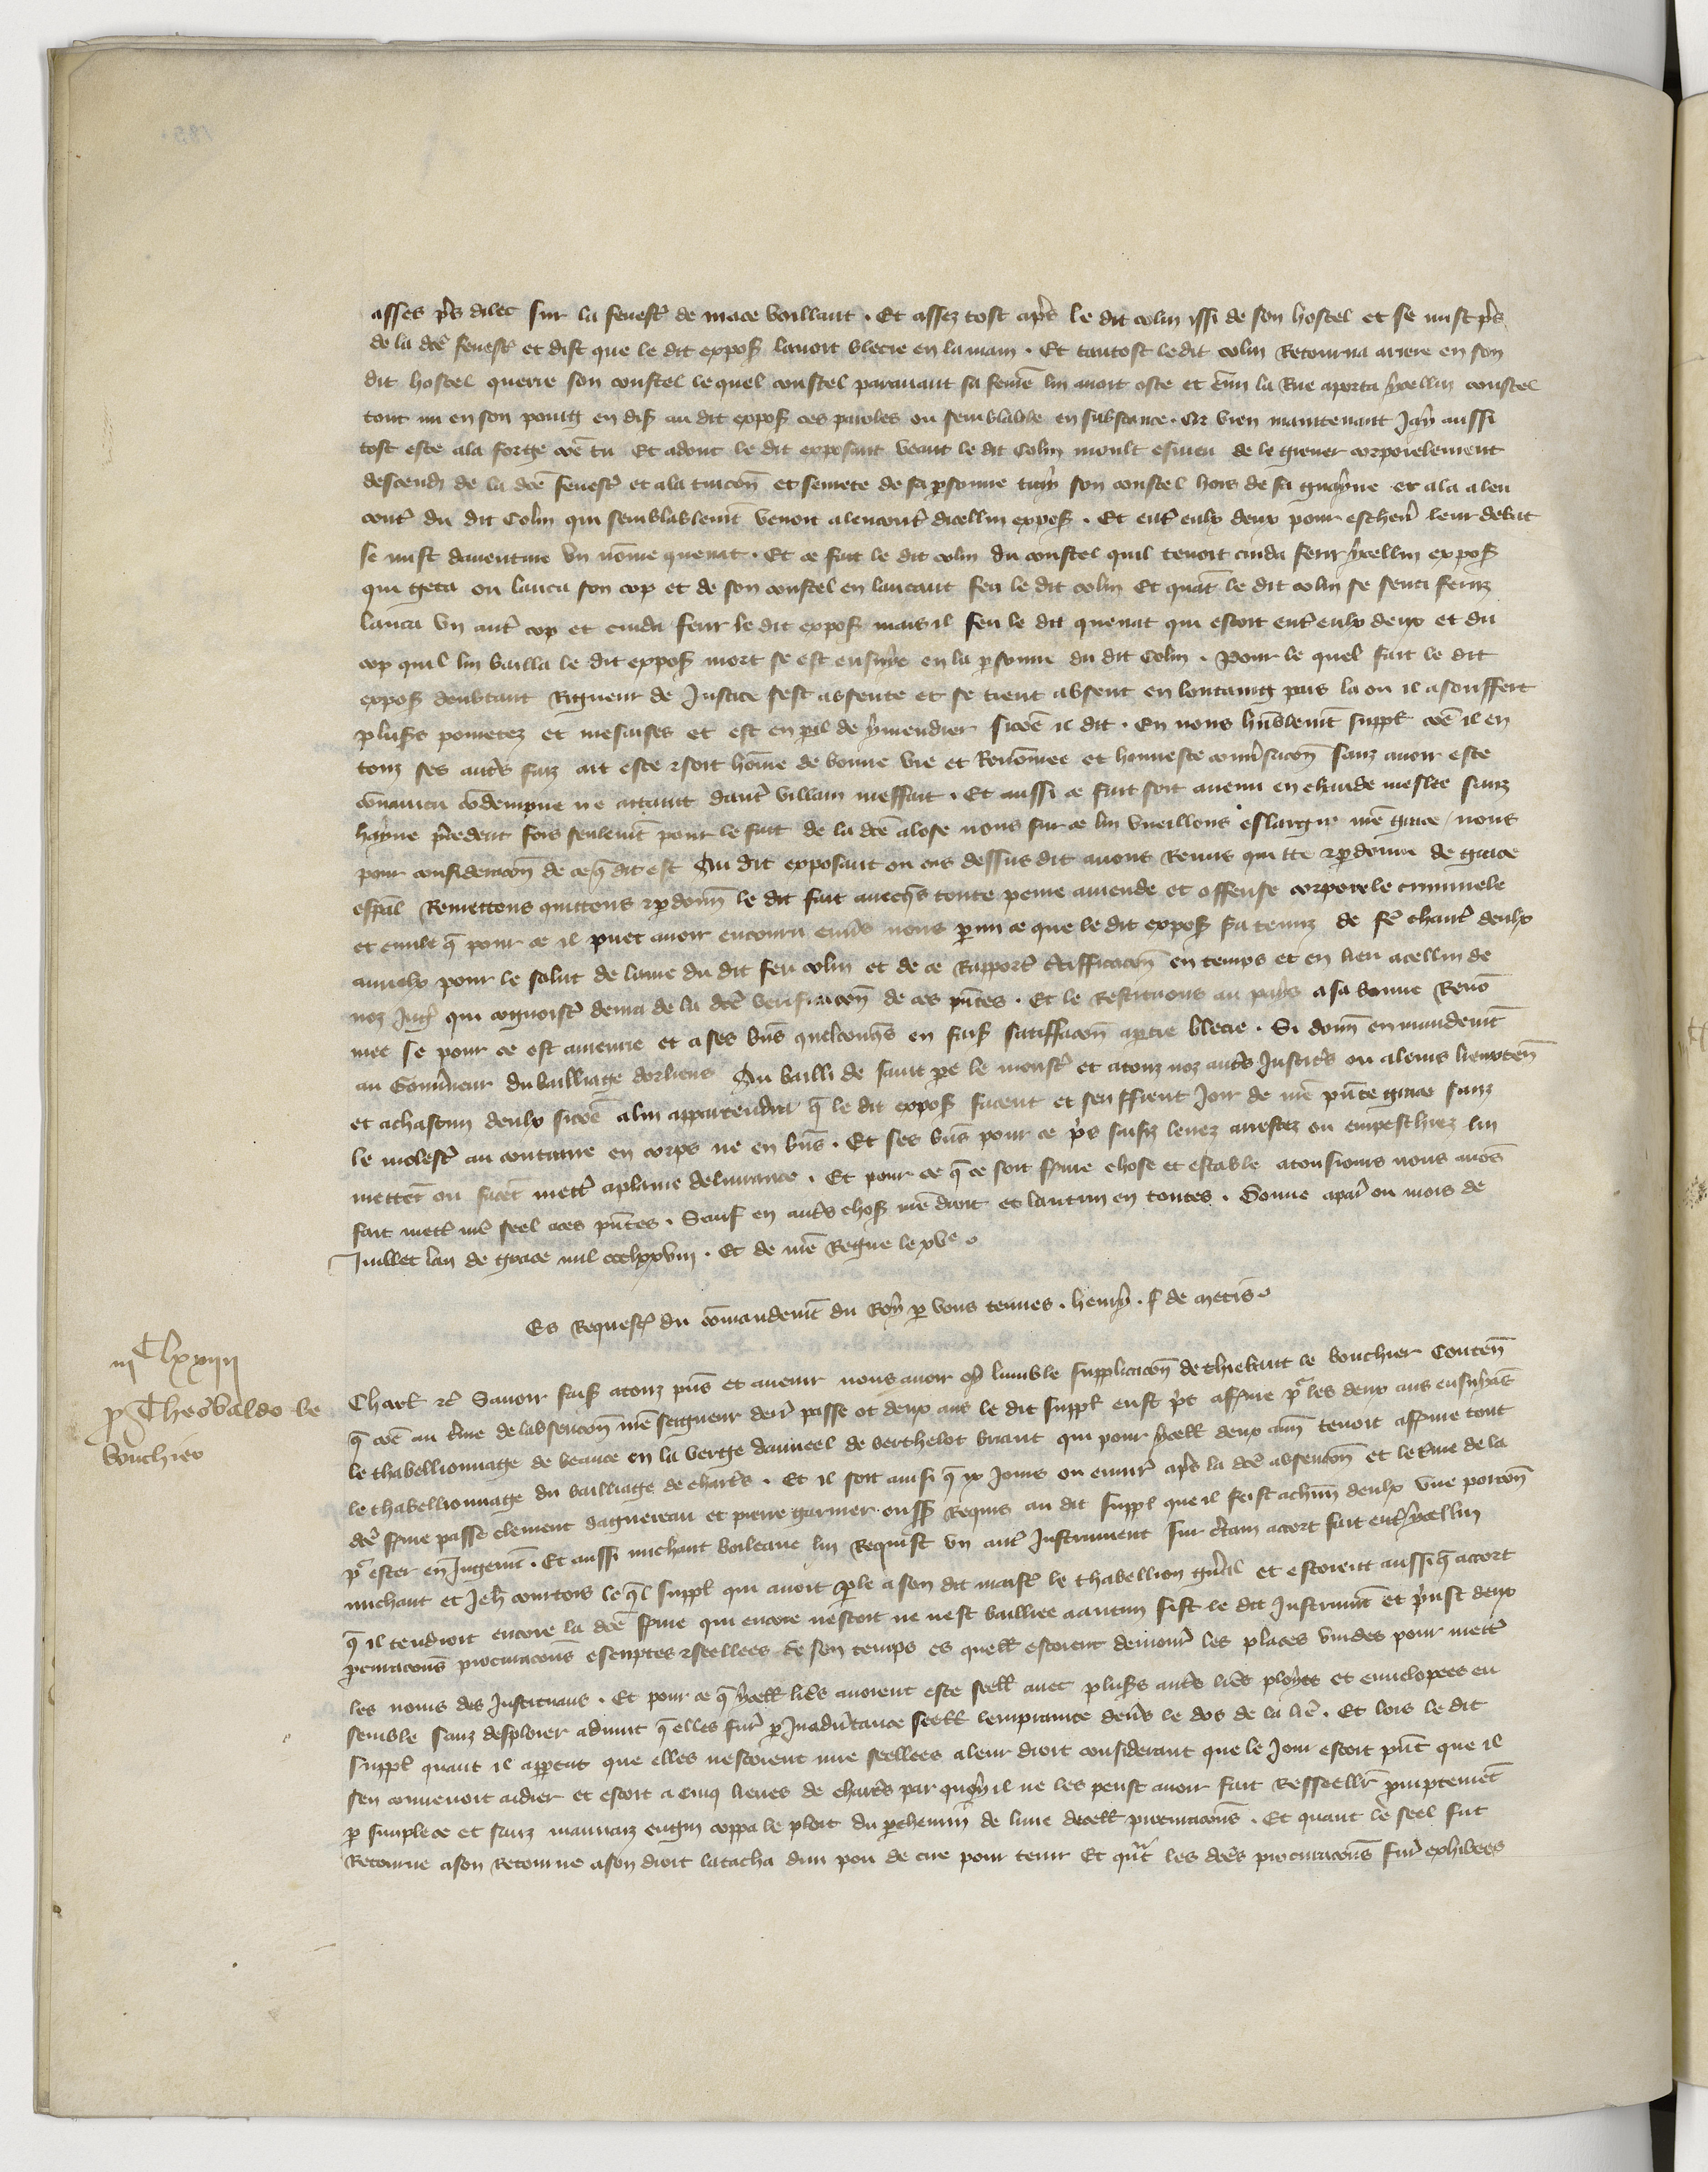 asses pres dilec sur la fenest de mace vaillant . Et assez tost apres le dit colin issi de son hostel et se mist pres
de la dce fenest et dist que le dit expos lavoit blecie en la main . Et tantost le dit colin Retourna arriere en son
dit hostel querre son coustel le quel coustel paravant sa feme lui avoit oste et en la Rue aporta ycellui coustel
tout nu en son pong en dis au dit expos ces paroles ou semblable en substance . Or vien maintenant Jay aussi
tost este a la forge coe tu Et adont le dit exposant veant le dit Colin moult esmeu de le grever corporelement
descendi de la dce fenest et a la tuicon et seurete de sa psonne tira son coustel hors de sa guayne et ala a len
cont du dit Colin qui semblablemt venoit alencont dicellui expos . Et ent eulx deux pour eschever leur debat
se mist daventure un nome quenat . Et ce fait le dit colin du coustel quil tenoit cuida ferir ycellui expos
qui geta ou lanca son cop et de son coustel en lancant feri le dit colin Et quat le dit colin se senti feruz
lanca un aut cop et cuida ferir le dit expos mais il feri le dit quenat qui estoit ent eulx deux et du
cop quil lui bailla le dit expos mort se est ensuye en la psonne du dit Colin . Pour le quel fait le dit
expos doubtant Rigueur de Justice sest absente et se tient absent en lontaing pais la ou il a souffert
plus povretez et mesaises et est en pil de y mendier sicoe il dit . En nous humblemt suppl coe il en
touz ses auts faiz ait este et soit home de bonne vie et Renomee et honneste convsacon sanz avoir este
convaicu codempne ne attaint daut villain meffait . Et aussi ce fait soit avenu en chaude meslee sanz
hayne precedent fors seulemt pour le fait de la dce alose nous sur ce lui vueillons eslargir nre grace / nous
pour consideracon de ce q dit est Au dit exposant ou cas dessus dit avons Remis quitte et pdonne de grace
espal Remettons quittons et pdonn le dit fait avecqs toute peine amende et offense corporele criminele
et civile q pour ce il puet avoir encouru envs nous pmi ce que le dit expos sa tenuz de fe chant deulx
annelx pour le salut de lame du dit feu colin et de ce Rapport Ctifficacon en temps et en lieu a cellui de
noz Jug qui cognoist devra de la dce verificacon de ces pntes . Et le Restituons au pays a sa bonne Reno
mee se pour ce est amenrie et a ses bns quelconqs en fais satiffacon a ptie blecie . Si donn en mandemt
au Gouvneur du bailliage dorliens Au bailli de saint pe le moust et a touz noz auts Justics ou a leurs lieuxten
et a chascun deulx sicoe a lui appartendra q le dit expos facent et seuffrent Joir de nre pnte grace sanz
le molest au contraire en corps ne en bns . Et ses bns pour ce pris saisiz levez arrestez ou empeschiez lui
mettet ou facet mett a plaine delivrance . Et pour ce q ce soit ferme chose et estable a tousiours nous avos
fait mett nre seel a ces pntes . Sauf en auts chos nre droit et lautrui en toutes . Donne a par ou mois de
Juillet lan de grace mil ccclxxviii . Et de nre Regne le xve
Es Request du comandemt du Roy p vous tenues . henry . f de metis
iii Clxxiiii
p Theobaldo le
bouchier
Charl etc Savoir fais a touz pns et avenir nous avoir oy lumble supplicacon de thiebaut le bouchier Conten
q coe au tme de labsencon nre seigneur der passe ot deux ans le dit suppl eust pris a ferme pr les deux ans ensuyas
le thabellionnage de beauce en la verge danneel de berthelot briant qui pour ycell deux ann tenoit a ferme tout
le thabellionnage du bailliage de charts . Et il soit ainsi q ix Jours ou envir apres la dce absencon et le tme de la
dce ferme passe clement dagnereau et pierre garnier euss Requis au dit suppl que il feist a chun deulx une procon
pr ester en Jugemt . Et aussi michaut boileaue lui Requist un aut Instrument sur ctain accort fait ent ycellui
michaut et Jeh courtois le ql suppl qui avoit ple a son dit maist le thabellion gnal et estoient aussi q accort
q il tendroit encore la dce ferme qui encore nestoit ne nest bailliee a autrui fist le dit Instrumt et prist deux
procuracons procuracons escriptes et seellees de son temps es quell estoient demour les places vuides pour mett
les noms des Instituans . Et pour ce q ycell lres avoient este seell avec plus auts lres ployees et envelopees en
semble sanz desploier advint q elles fur p Inadvtance seell lempraincte devs le dos de la lre . Et lors le dit
suppl quant il appceut que elles nestoient mie seellees a leur droit considerant que le Jour estoit pnt que il
sen convenoit aidier et estoit a cinq lieues de charts par quoy il ne les peust avoir fait Resseeller promptemet
p simplece et sanz mauvaiz engin coppa le ploit du pchemin de lune dicell procuracons . Et quant le seel fut
Retourne a son Retourne a son droit latacha dun pou de cire pour tenir Et qnt les dces procuracons fur exhibees